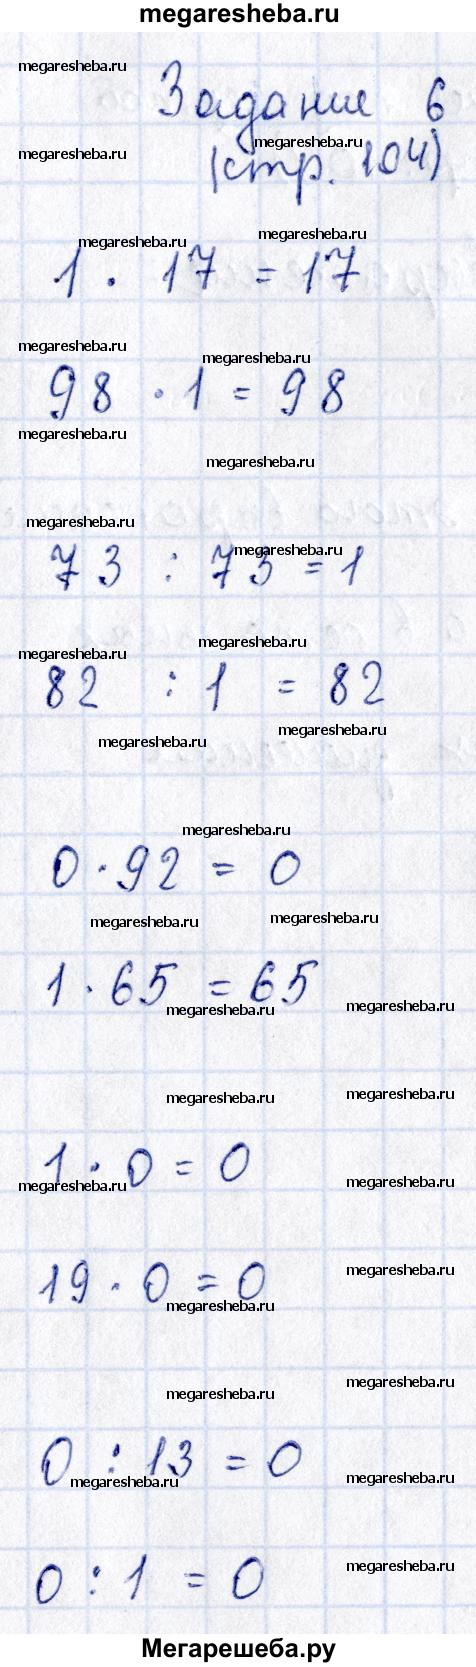 megaresheba.ru
megaresheba.ru
Задание 6
megaresheba.ru
megaresheba.ru
(стр. 104)
megaresheba.ru
megaresheba.ru
1 · 17 = 17
megaresheba.ru
megaresheba.ru
98 · 1 = 98
megaresheba.ru
megaresheba.ru
megaresheba.ru
megaresheba.ru
73 : 73 = 1
megaresheba.ru
megaresheba.ru
82 : 1 = 82
megaresheba.ru
megaresheba.ru
megaresheba.ru
0 · 92 = 0
megaresheba.ru
megaresheba.ru
1 · 65 = 65
megaresheba.ru
megaresheba.ru
megaresheba.ru
megaresheba.ru
1 · 0 = 0
megaresheba.ru
megaresheba.ru
19 · 0 = 0
megaresheba.ru
megaresheba.ru
megaresheba.ru
megaresheba.ru
0 : 13 = 0
megaresheba.ru
megaresheba.ru
0 : 1 = 0
megaresheba.ru
Мегарешеба.ру